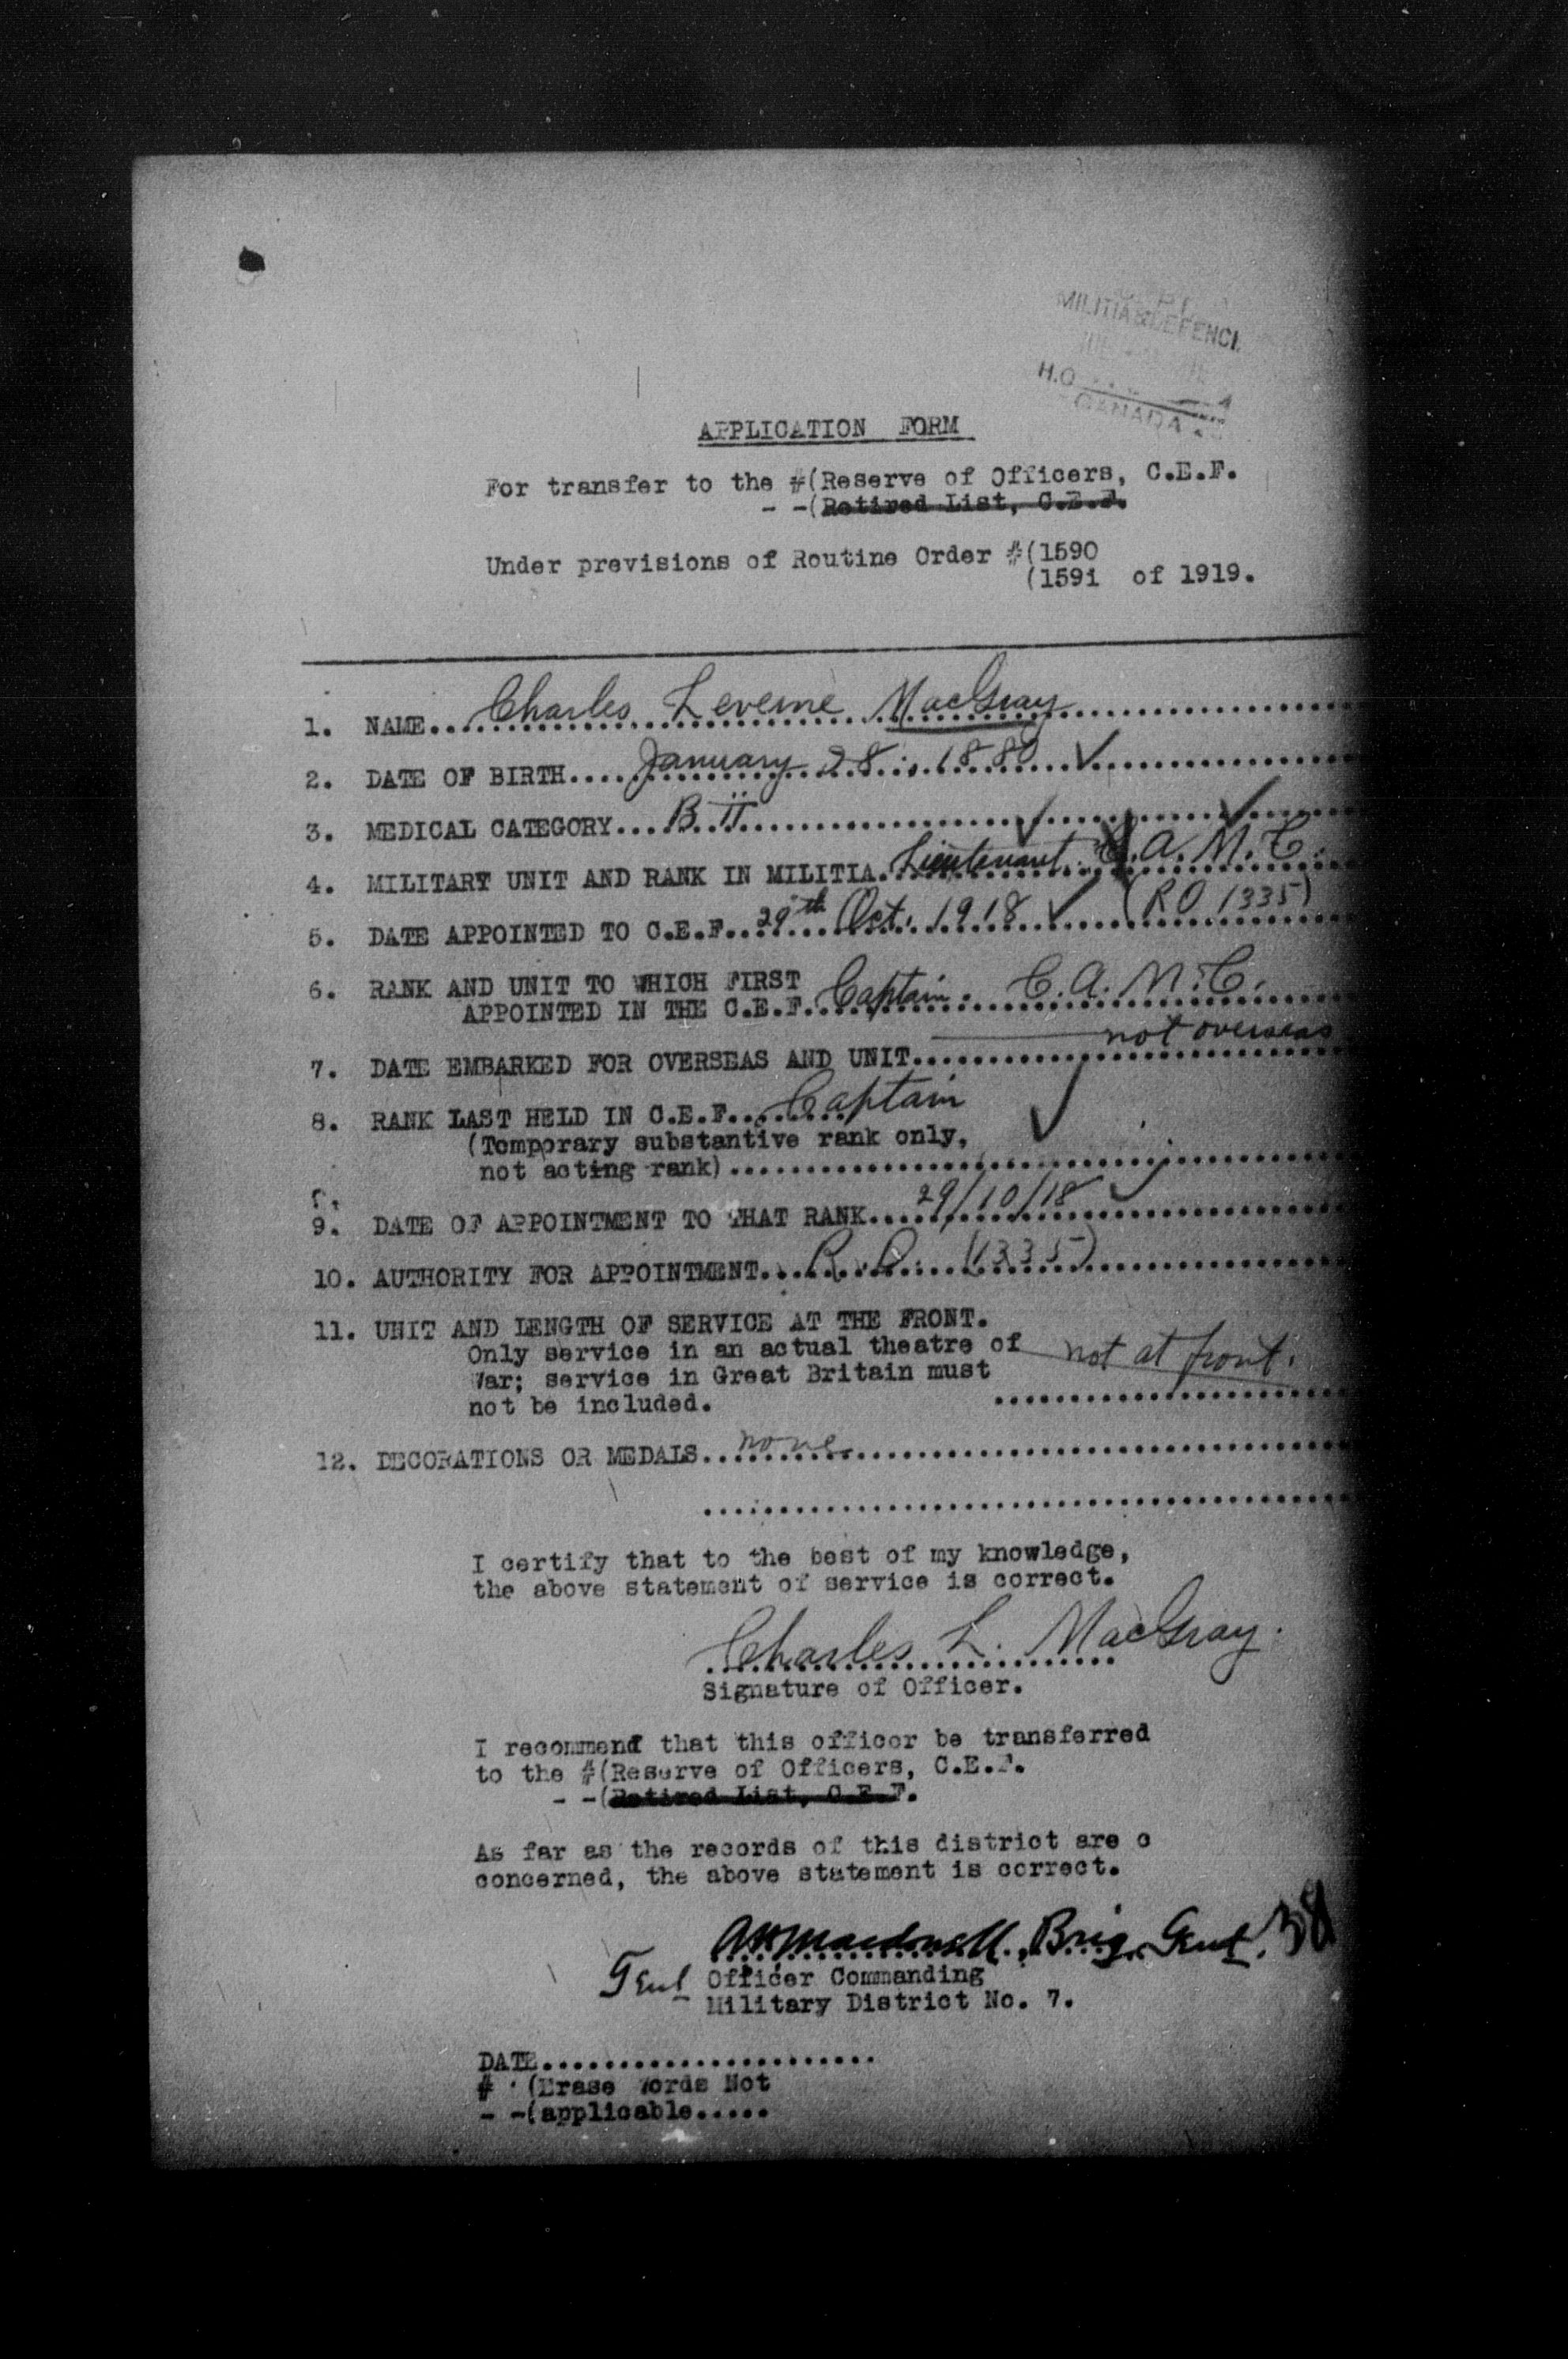 MILITIA & DEFENCE
H.Q.
CANADA
APPLICATION FORM
For transfer to the #(Reserve of Officers, C.E.F.
- -(Retired List, C.E.F.
Under previsions of Routine Order #(1590
(1591 of 1919.
1. NAME... Charles Leverne MacGray
2. DATE OF BIRTH.... January 28, 1880 ✓
3. MEDICAL CATEGORY.... B ii
4. MILITARY UNIT AND RANK IN MILITIA. Lieutenant C.A.M.C.
5. DATE APPOINTED TO C.E.F.. 29th Oct. 1918 ✓ (RO 1335)
6. RANK AND UNIT TO WHICH FIRST
APPOINTED IN THE C.E.F. Captain. C.A.M.C.
7. DATE EMBARKED FOR OVERSEAS AND UNIT.... not overseas
8. RANK LAST HELD IN C.E.F... Captain
(Temporary substantive rank only,
not acting rank)
9. DATE OF APPOINTMENT TO THAT RANK.... 29/10/18
10. AUTHORITY FOR APPOINTMENT... R.O. (1335)
11. UNIT AND LENGTH OF SERVICE AT THE FRONT.
Only service in an actual theatre of
War; service in Great Britain must not at front.
not be included.
12. DECORATIONS OR MEDALS.. none
I certify that to the best of my knowledge,
the above statement of service is correct.
Charles L. MacGray.
Signature of Officer.
I recommend that this officer be transferred
to the #(Reserve of Officers, C.E.F.
- -(Retired List, C.E.F.
As far as the records of this district are c
concerned, the above statement is correct.
Brig. Genl.
Genl Officer Commanding
Military District No. 7.
DATE.......................
# (Erase Words Not
- -(applicable.....